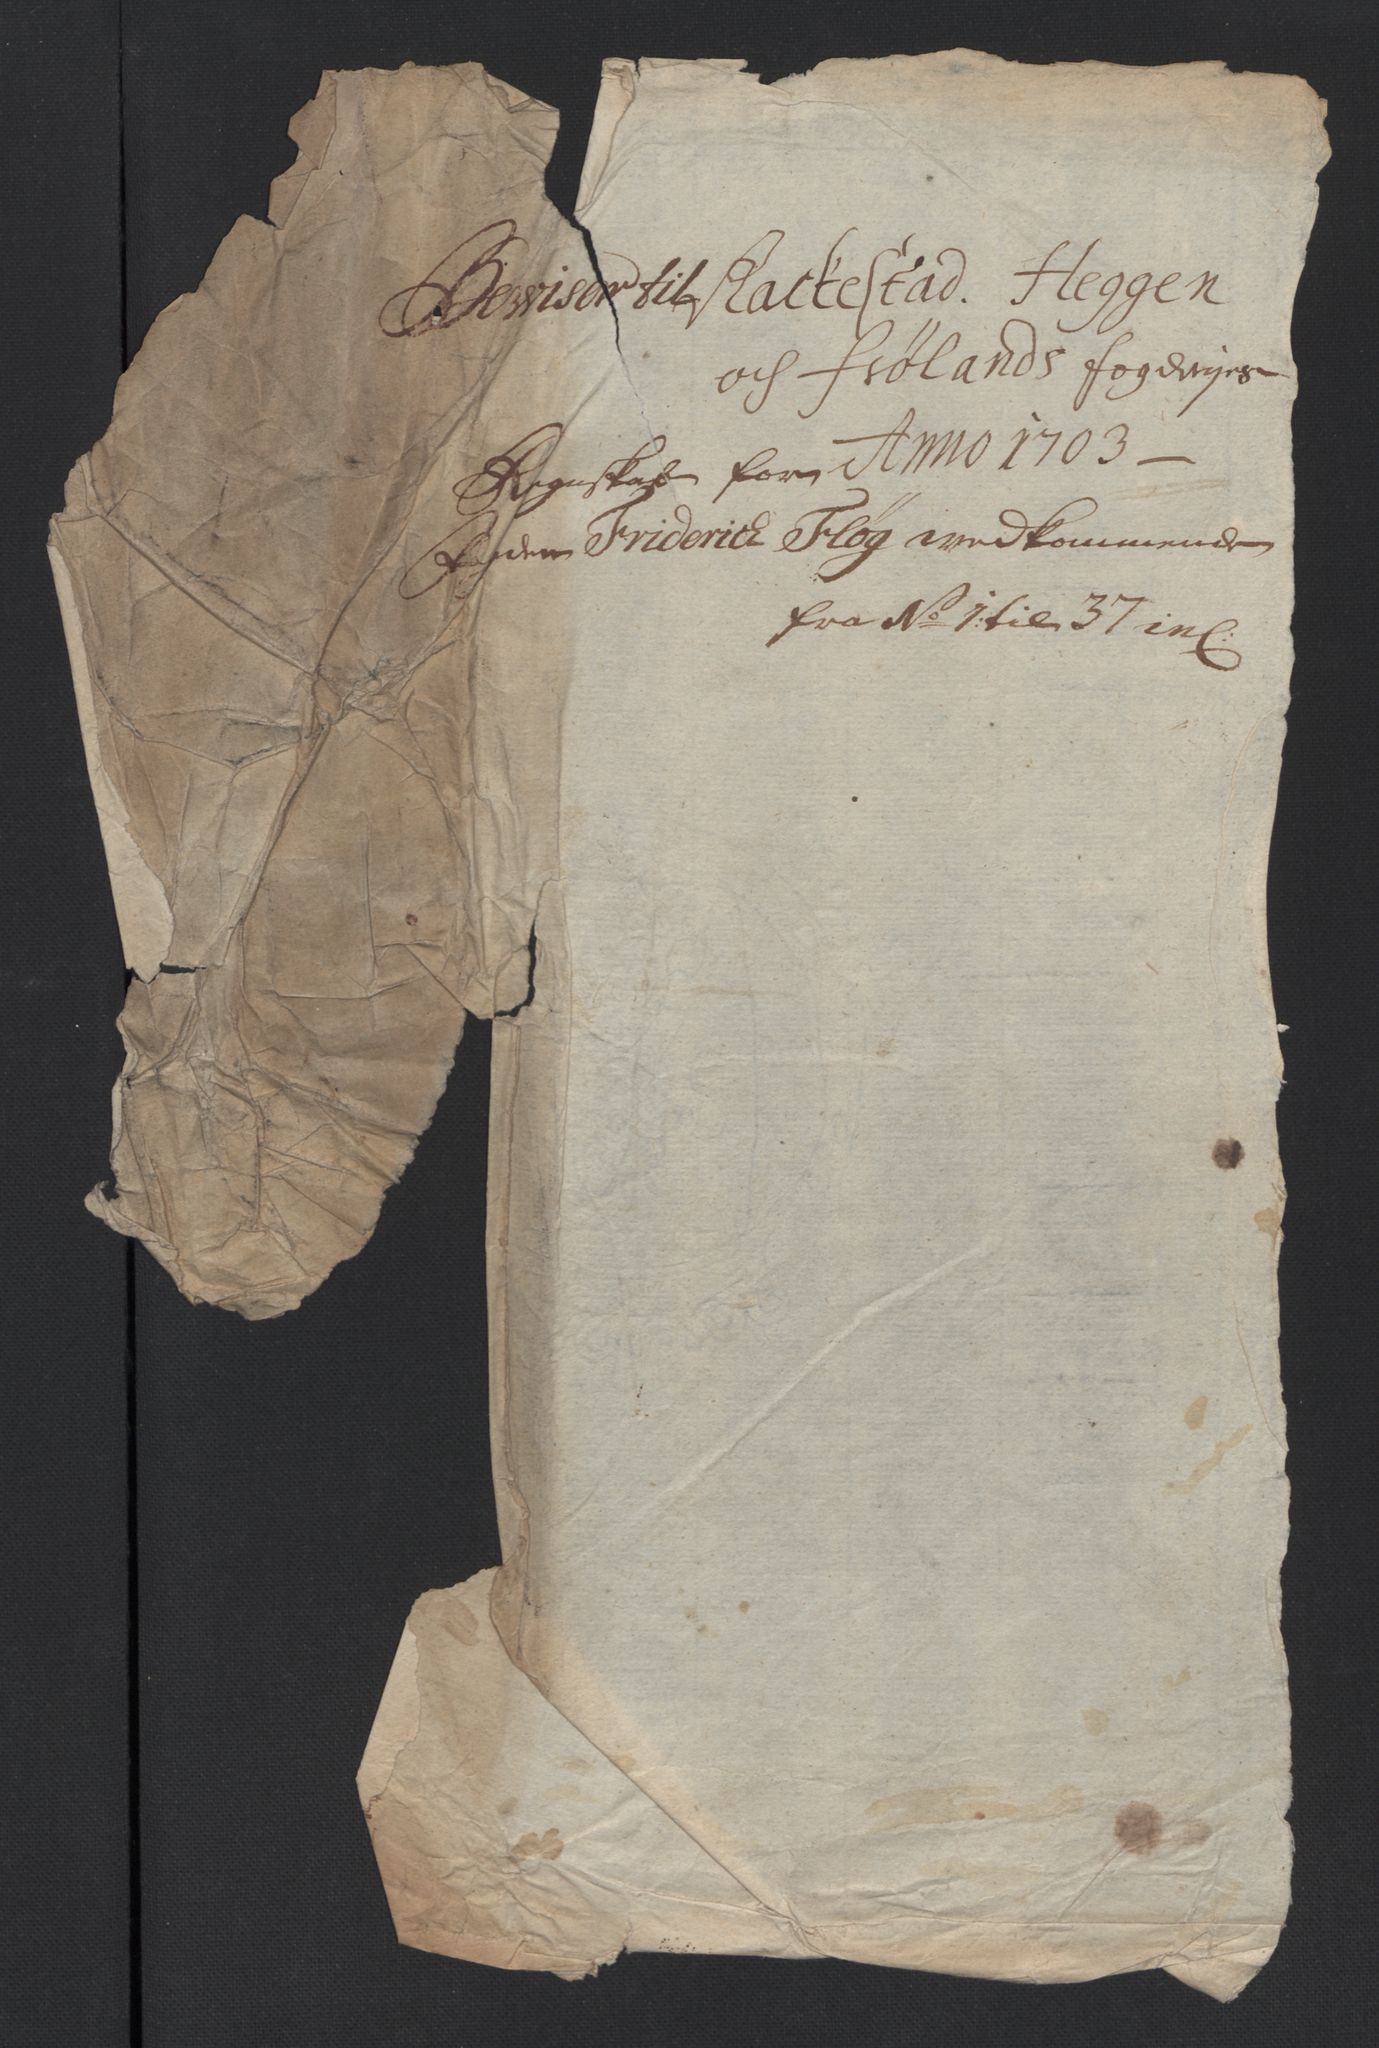 Bewiser til Rackestad. Heggen
och Frølands fogderies
Regnskab for Anno 1703 —
Friderich Fløg vedkommende
fra No 1: til 37 incl: